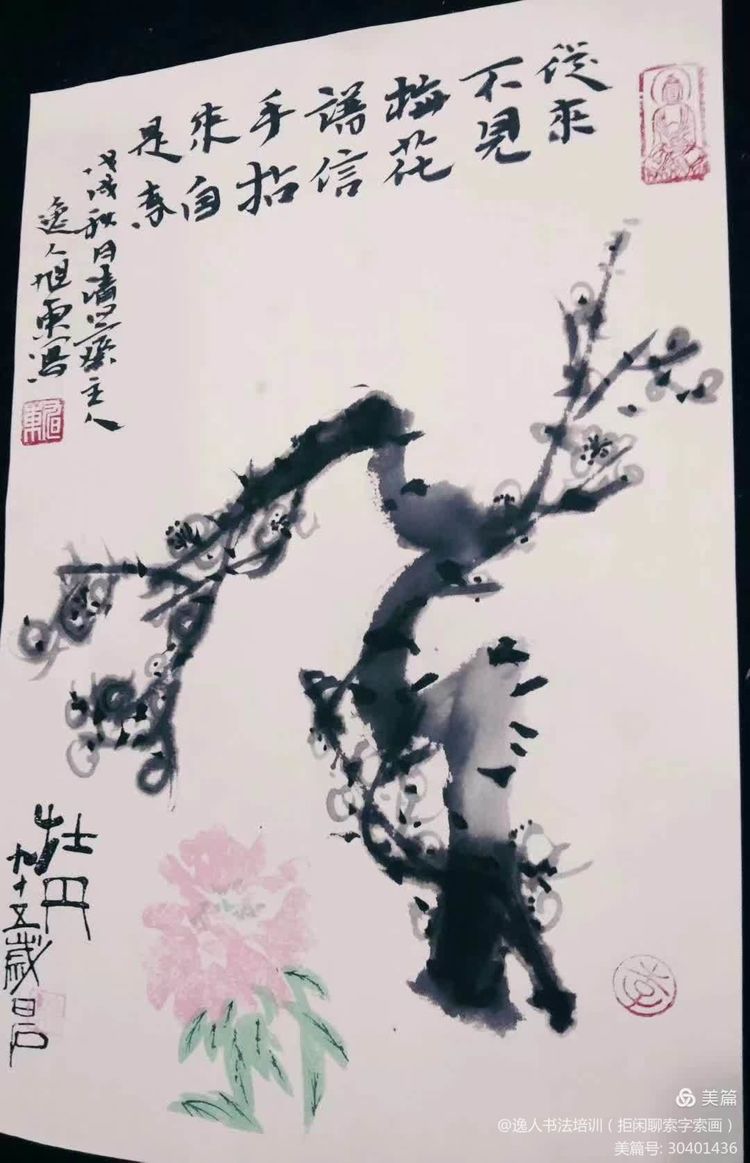 從來
不見
梅花
譜信
手拈
來自
是春
戊戌秋日清罡齋主人
逸人旭東寫
牡丹
九十五歲日石
美篇
@逸人书法培训（拒闲聊索字索画）
美篇号: 30401436